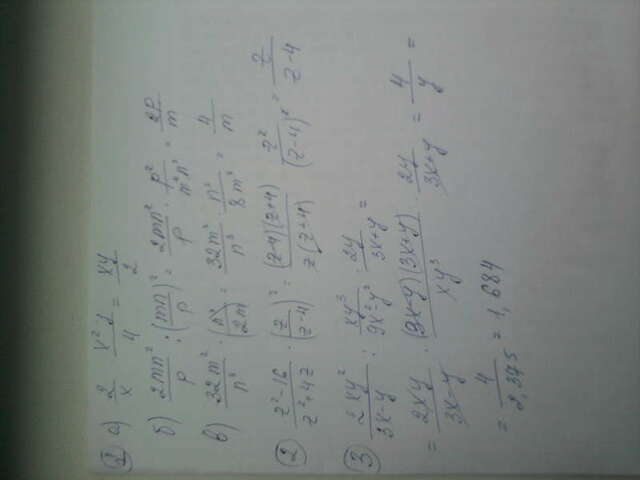 1 а) 2/x · x²y/4 = xy/2
б) 2mn²/p : (mn/p)² = 2mn²/p · p²/m²n² = 2p/m
в) 32m²/n³ · (n/2m)³ = 32m²/n³ · n³/8m³ = 4/m
2 z²-16/z²+4z · (z/z-4)² = (z-4)(z+4)/z(z+4) z²/(z-4)² = z/z-4
3 2xy²/3x-y : xy³/9x²-y² · 2y/3x+y =
= 2xy/3x-y · (3x-y)(3x+y)/xy³ · 2y/3x+y = 4/y =
= 4/2,375 = 1,684